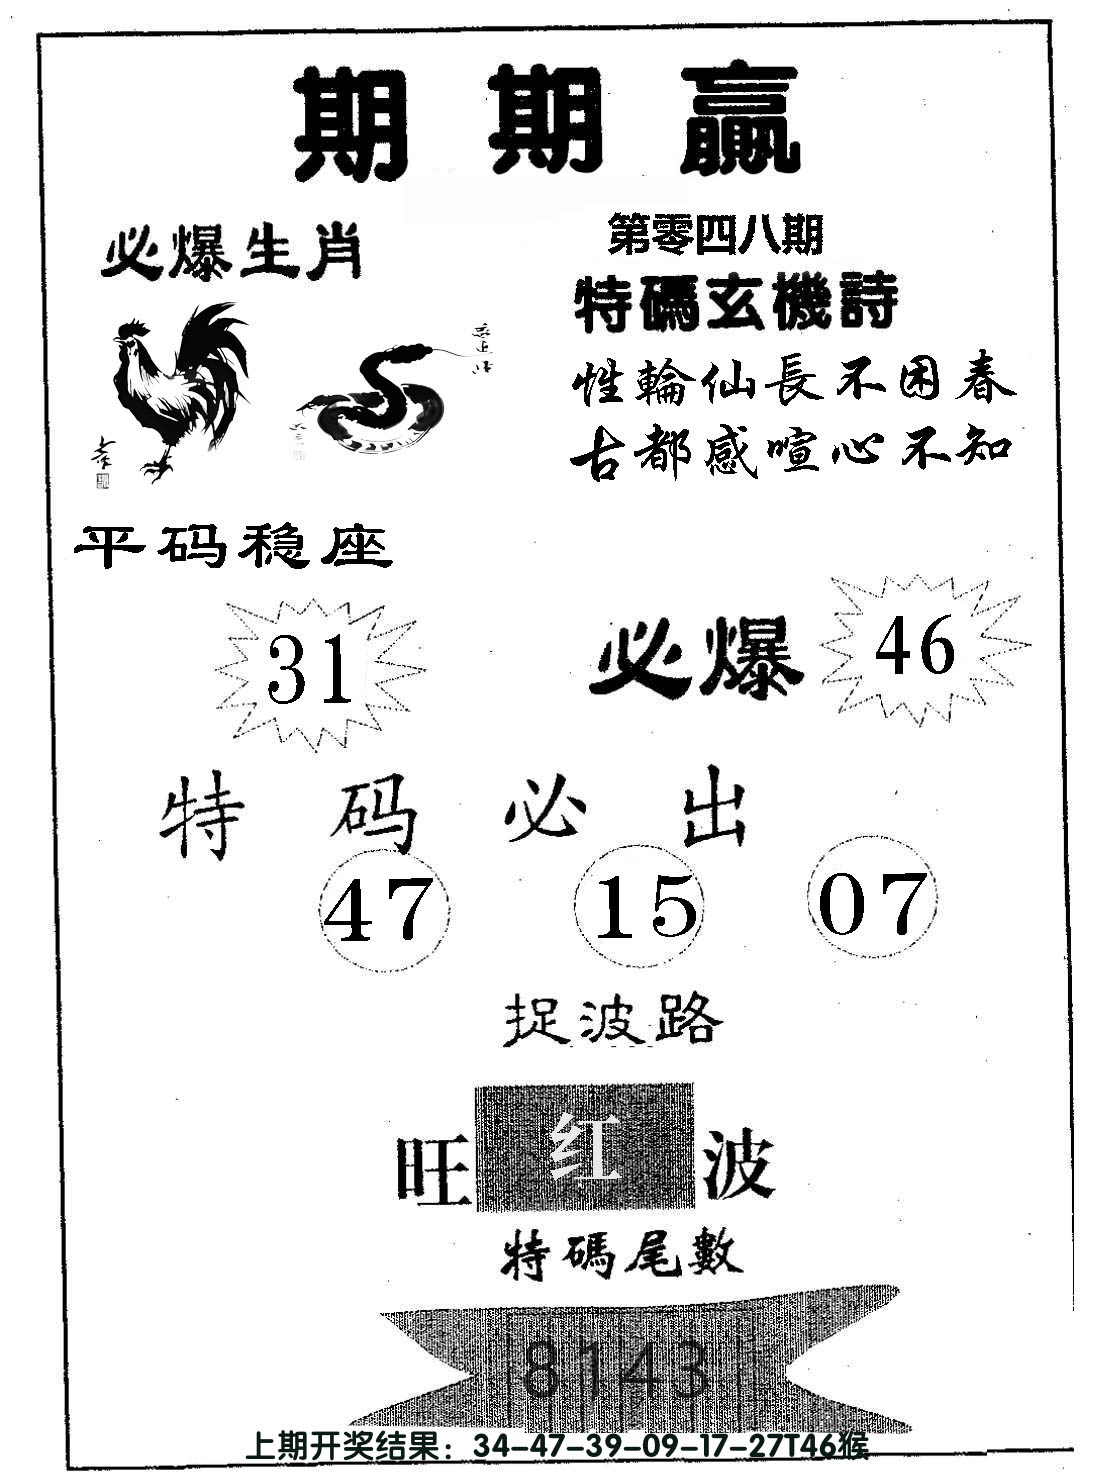 期期赢
必爆生肖
第零四八期
特碼玄機詩
性輪仙長不困春
古都感喧心不知
平码稳座
31
必爆
46
特码必出
47 15 07
捉波路
旺红波
特碼尾數
8143
上期开奖结果：34-47-39-09-17-27T46猴